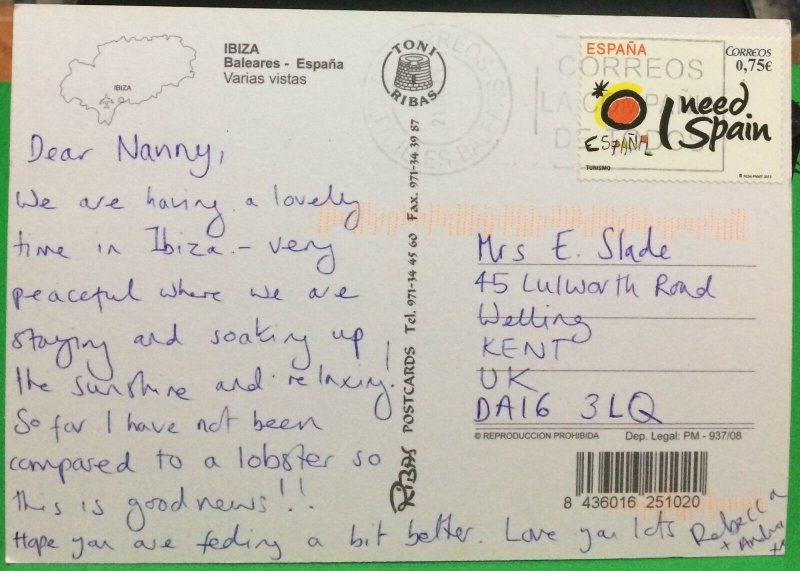 IBIZA
Baleares - España
Varias vistas
IBIZA
TONI
RIBAS
ESPAÑA
CORREOS
0,75€
I need
Spain
ESPAÑA
TURISMO
CORREOS
LA COMPAÑIA
DE TODOS
Dear Nanny,
We are having a lovely
time in Ibiza - very
peaceful where we are
staying and soaking up
the sunshine and relaxing!
So far I have not been
compared to a lobster so
this is good news!!
Hope you are feeling a bit better. Love you lots Rebecca
+ Andrew
RIBAS POSTCARDS Tel. 971-34 45 60 Fax. 971-34 39 87
Mrs E. Slade
45 Lulworth Road
Welling
KENT
UK
DA16 3LQ
© REPRODUCCION PROHIBIDA Dep. Legal: PM - 937/08
8 436016 251020